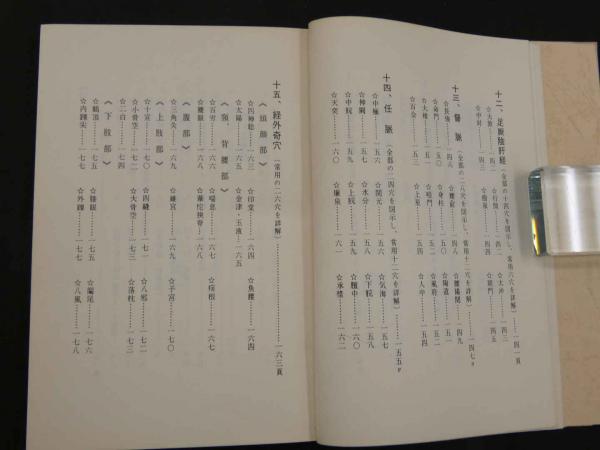 十二、足厥陰肝経（全部の十四穴を図示し、常用六穴を詳解）……一四一頁
☆大敦……一四二 ☆行間……一四二 ☆太冲……一四三
☆中封……一四三 ☆曲泉……一四四 ☆期門……一四五
十三、督脈（全部の二八穴を図示し、常用十二穴を詳解）……一四七〃
☆長強……一四八 ☆腰兪……一四八 ☆腰陽関……一四九
☆命門……一五〇 ☆身柱……一五〇 ☆陶道……一五一
☆大椎……一五二 ☆啞門……一五二 ☆風府……一五三
☆百会……一五 ☆上星……一五 ☆人中……一五四
十四、任脈（全部の二四穴を図示し、常用十二穴を詳解）……一五五〃
☆中極……一五六 ☆関元……一五六 ☆気海……一五七
☆神闕……一五 ☆水分……一五八 ☆下脘……一五八
☆中脘……一五九 ☆上脘……一五九 ☆膻中……一六〇
☆天突……一六〇 ☆廉泉……一六一 ☆承漿……一六二
十五、経外奇穴（常用の二六穴を詳解）……一六三頁
《頭顔部》
☆四神聡……一六四 ☆印堂……一六四 ☆魚腰……一六四
☆太陽……一六五 ☆金津・玉液……一六五
《頸、背腰部》
☆百労……一六六 ☆喘息……一六七 ☆痞根……一六七
☆腰眼……一六八 ☆華佗挾脊……一六八
《腹部》
☆三角灸……一六九 ☆維宮……一六九 ☆子宮……一七〇
《上肢部》
☆十宣……一七〇 ☆四縫……一七一 ☆八邪……一七一
☆小骨空……一七二 ☆大骨空……一七三 ☆落枕……一七二
☆二白……一七四
《下肢部》
☆鶴頂……一七五 ☆膝眼……一七五 ☆闌尾……一七六
☆内踝尖……一七 ☆外踝……一七 ☆八風……一七八